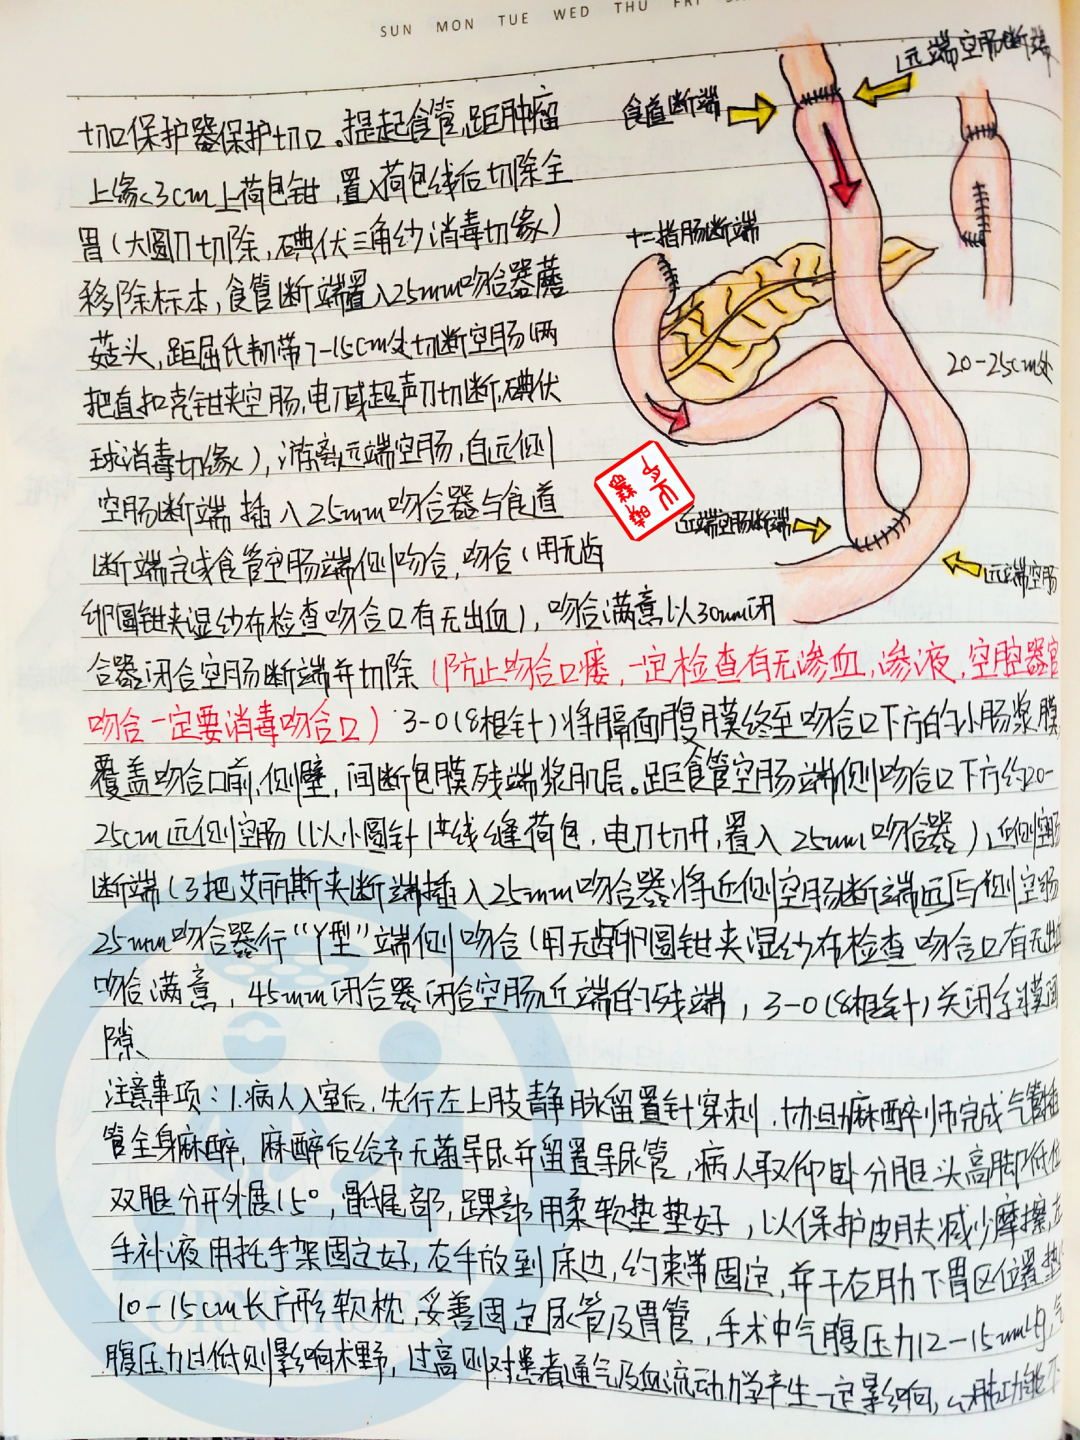 SUN MON TUE WED THU FRI
远端空肠断端
食道断端
切口保护器保护切口。提起食管,距肿瘤
上缘<3cm上荷包钳,置入荷包线后切除全
胃(大圆刀切除,碘伏三角纱消毒切缘)
十二指肠断端
移除标本,食管断端置入25mm吻合器蘑
菇头,距屈氏韧带7-15cm处切断空肠(两
20-25cm处
把直扣克钳夹空肠,电刀或超声刀切断,碘伏
球消毒切缘),游离远端空肠,自远侧
空肠断端插入25mm吻合器与食道
近端空肠断端
断端完成食管空肠端侧吻合,吻合(用无齿
远端空肠
卵圆钳夹湿纱布检查吻合口有无出血),吻合满意以30mm闭
合器闭合空肠断端并切除(防止吻合口瘘,一定检查有无渗血,渗液,空腔器官
吻合一定要消毒吻合口)3-0(8根针)将膈面腹膜终至吻合口下方的小肠浆膜
覆盖吻合口前,侧壁,间断包膜残端浆肌层。距食管空肠端侧吻合口下方约20-
25cm远侧空肠(以小圆针1#线缝荷包,电刀切开,置入25mm吻合器)近侧空肠
断端(3把艾丽斯夹断端插入25mm吻合器将近侧空肠断端与远侧空肠
25mm吻合器行“Y型”端侧吻合(用无齿卵圆钳夹湿纱布检查吻合口有无出血
吻合满意,45mm闭合器闭合空肠近端的残端,3-0(8根针)关闭系膜间
隙
注意事项:1.病人入室后,先行左上肢静脉留置针穿刺,协助麻醉师完成气管插
管全身麻醉,麻醉后给予无菌导尿并留置导尿管,病人取仰卧分腿头高脚低位
双腿分开外展15°,骶尾部,踝部用柔软垫垫好,以保护皮肤减少摩擦,左
手补液用托手架固定好,右手放到床边,约束带固定,并于右肋下胃区位置垫
10-15cm长方形软枕,妥善固定尿管及胃管,手术中气腹压力12-15mmHg,气
腹压力过低则影响术野,过高则对患者通气及血流动力学产生一定影响,心肺功能不